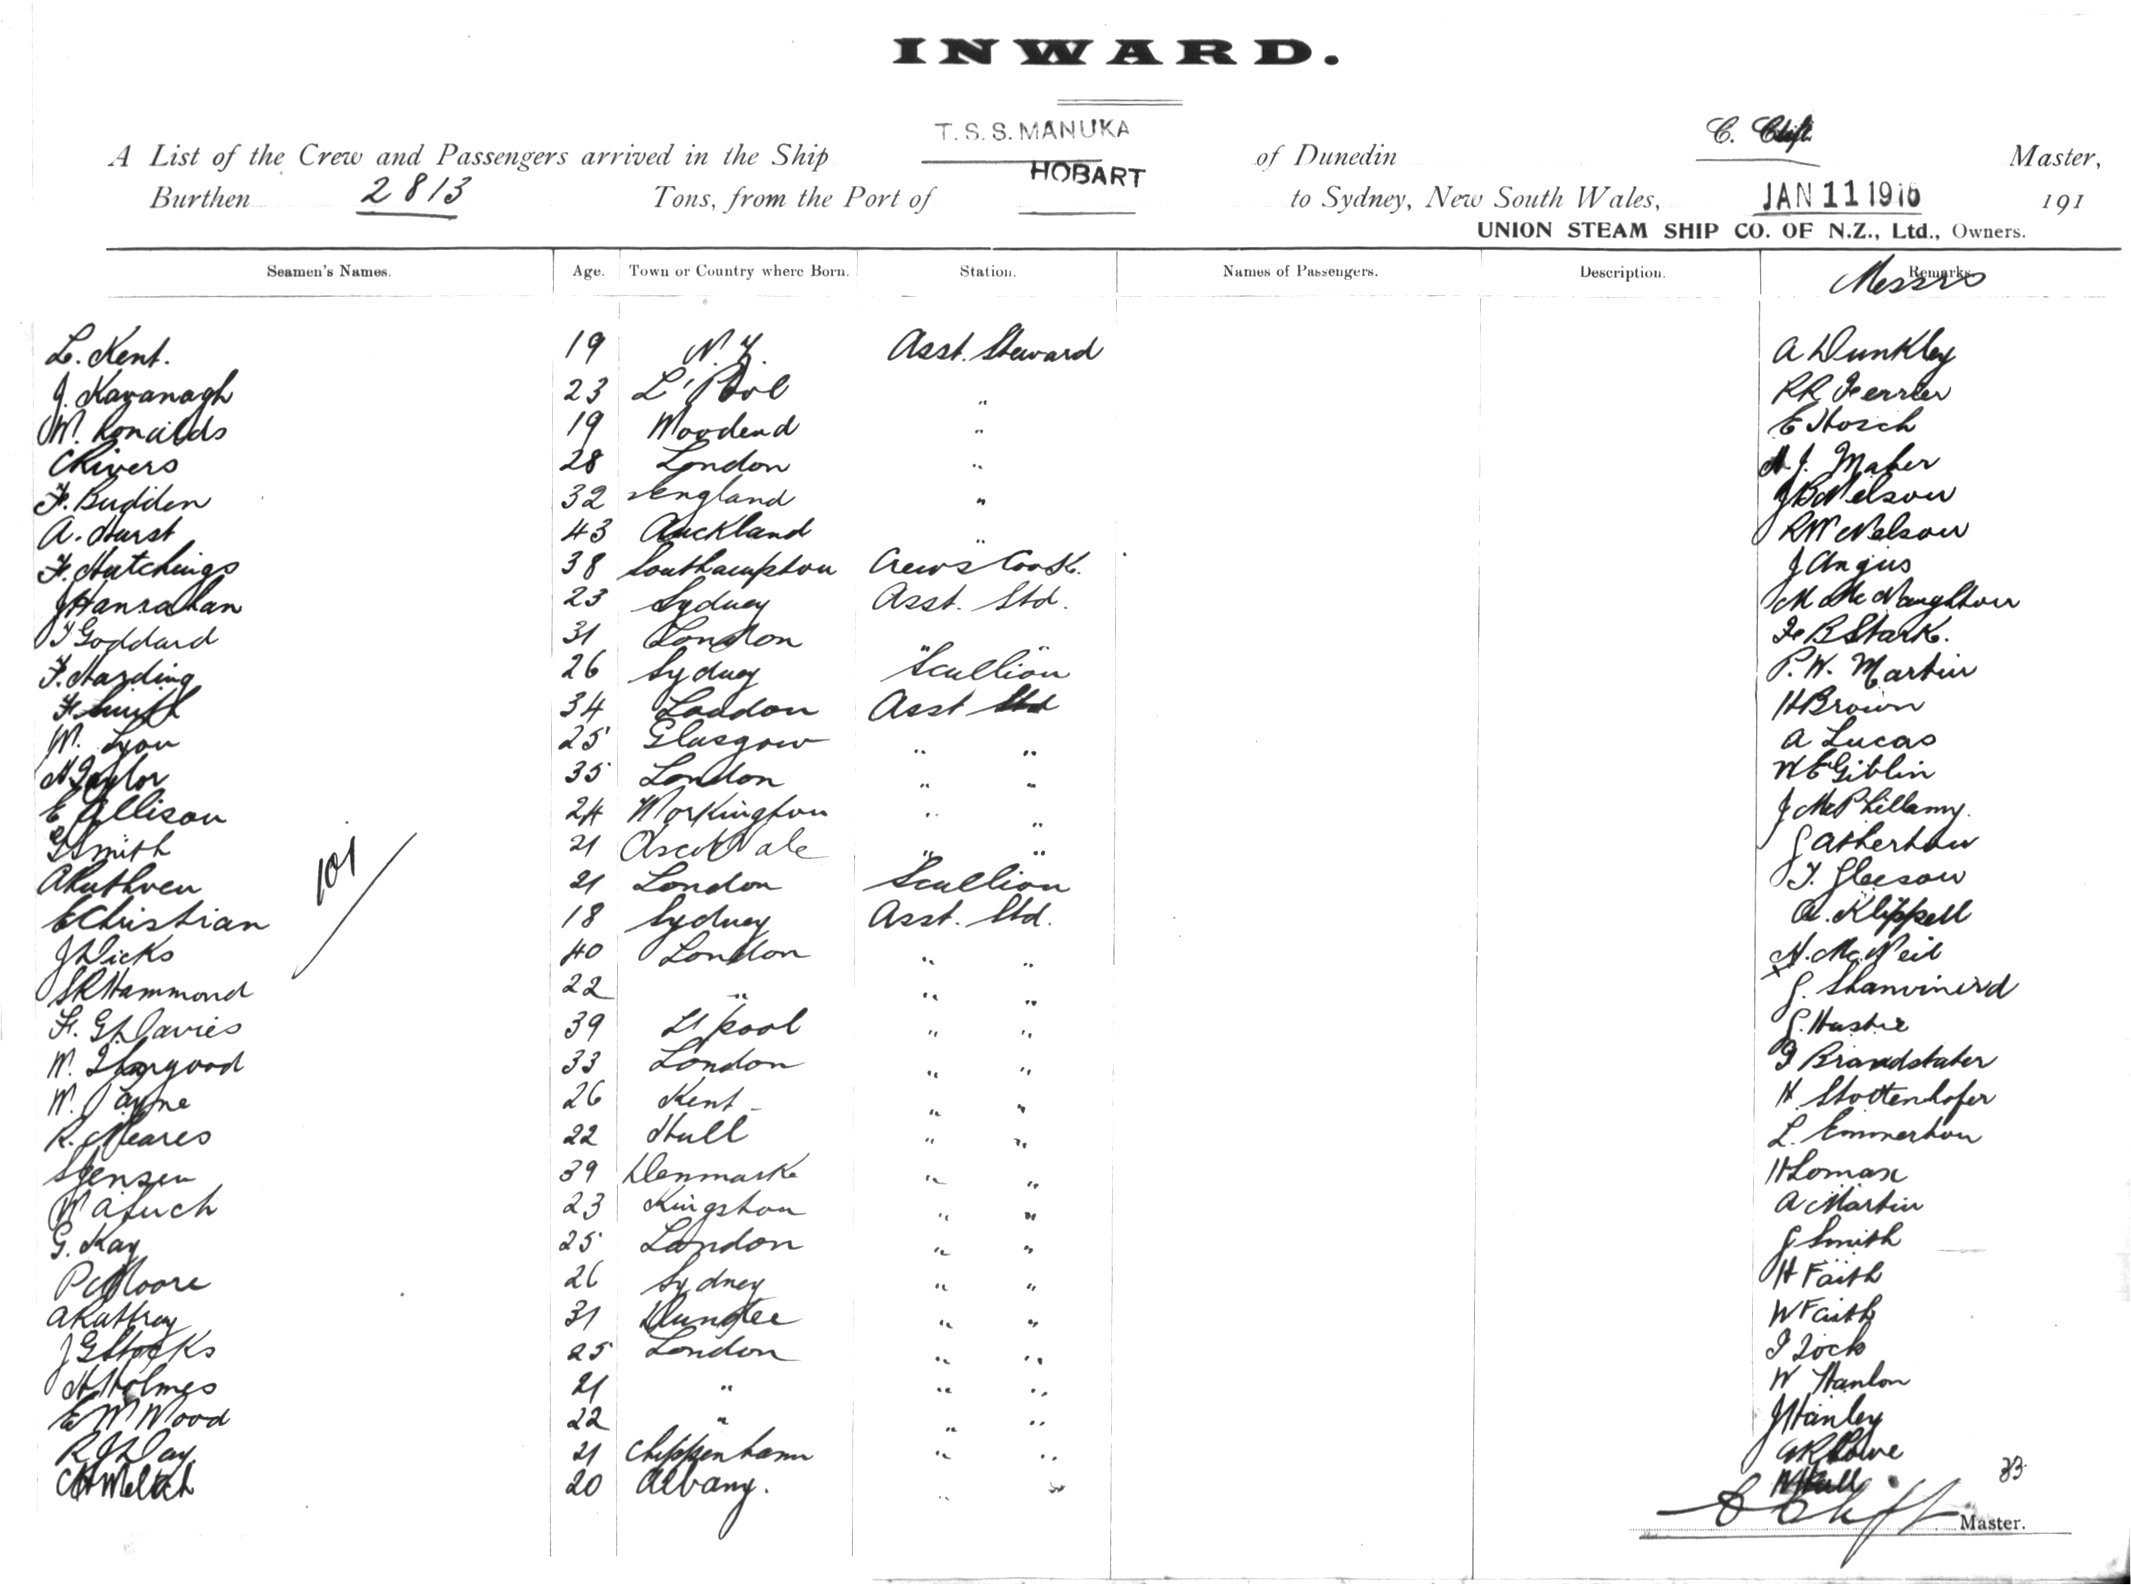 INWARD.
A List of the Crew and Passengers arrived in the Ship T.S.S. MANUKA of Dunedin C. Clift Master,
Burthen 2813 Tons, from the Port of HOBART to Sydney, New South Wales, JAN 11 1916 191
UNION STEAM SHIP CO. OF N.Z., Ltd., Owners.
Seamen's Names. Age. Town or Country where Born. Station. Names of Passengers. Description. Remarks Messrs
L. Kent. 19 N.Z. Asst. Steward A Dunkley
J. Kavanagh 23 L'Pool " RR Ferrier
W. Ronalds 19 Woodend " E Hosch
C Rivers 28 London " J. Maher
F. Budden 32 England " JB Nelson
A. Hurst 43 Auckland " RW Nelson
F. Hutchings 38 Southampton Crews Cook. J Angus
J Hanrahan 23 Sydney Asst. Std. M McNaughton
T Goddard 31 London " " F B Stark.
F. Harding 26 Sydney Scullion P. W. Martin
F. Smith 34 London Asst Std H Brown
W. Lyon 25 Glasgow " " A Lucas
H Taylor 35 London " " W E Giblin
E Allison 24 Workington " " J McPhillamy.
G Smith 21 Ascot Vale " " J Atherton
A Ruthven 21 London Scullion T. Gleeson
E Christian 18 Sydney Asst. Std. A. Klippell
J Dicks 40 London " " H. McNeil
SR Hammond 22 " " " J.
F. G Davies 39 L'pool " " J.
W. Thorgood 33 London " " Brandstater
W. Payne 26 Kent " " H Stottenhofer
R. Meares 22 Hull " " L. Emmerton
S Jensen 39 Denmark " " H Lomax
W A 23 Kingston " " A Martin
G. Kay 25 London " " J Smith
P Moore 26 Sydney " " H Faith
A Rattray 31 Dundee " " W Faith
J G Stocks 25 London " "
H Holmes 21 " " " W Hanlon
E W Wood 22 " " " J Hanley
R J Day 21 Chippenham " "
20 Albany. " " W Hall
101
33
C Clift Master.